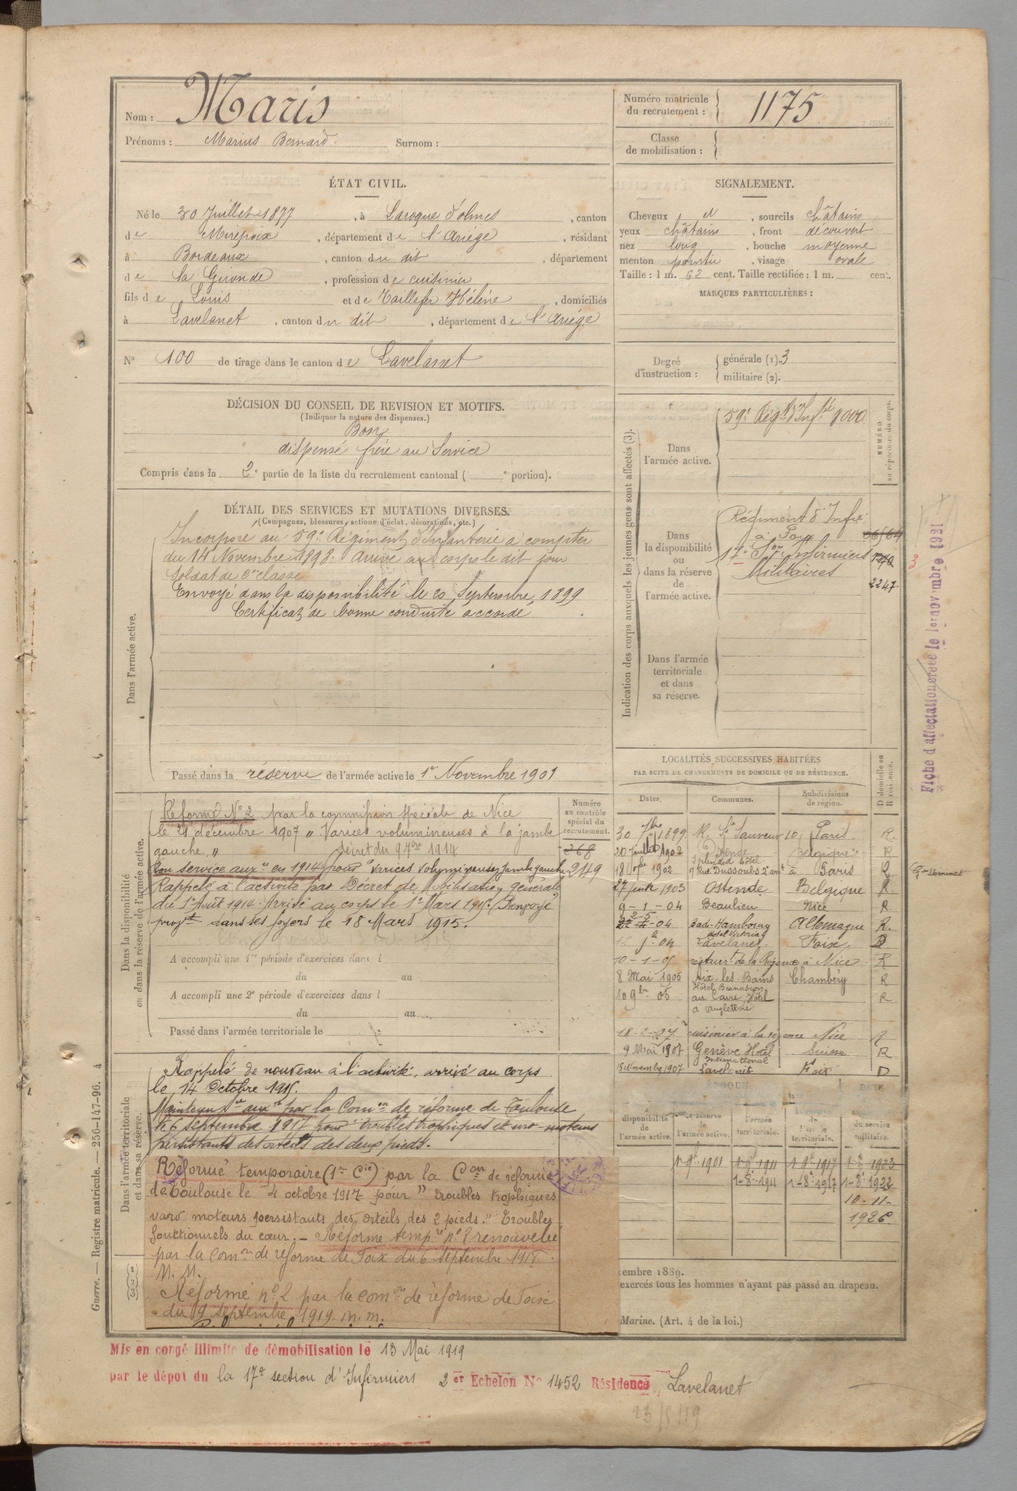 Nom : Maris
Prénoms : Marius Bernard Surnom :
Numéro matricule du recrutement : 1175
Classe de mobilisation :
ÉTAT CIVIL.
Né le 30 Juillet 1877, à Laroque d'olmes, canton
de Mirepoix, département de l'Ariège, résidant
à Bordeaux, canton du dit, département
de la Gironde, profession de cuisinier
fils de Louis et de Taillefer Hélène, domiciliés
à Lavelanet, canton du dit, département de l'Ariége
N° 100 de tirage dans le canton de Lavelanet
SIGNALEMENT.
Cheveux et, sourcils châtains
yeux châtains, front découvert
nez long, bouche moyenne
menton pointu, visage ovale
Taille : 1 m. 62 cent. Taille rectifiée : 1 m. cent.
MARQUES PARTICULIÈRES :
Degré d'instruction : générale (1). 3
militaire (2).
DÉCISION DU CONSEIL DE REVISION ET MOTIFS.
(Indiquer la nature des dispenses.)
Bon
dispensé frère au Service
Compris dans la 2e partie de la liste du recrutement cantonal ( e portion).
DÉTAIL DES SERVICES ET MUTATIONS DIVERSES.
(Campagnes, blessures, actions d'éclat, décorations, etc.)
Dans l'armée active.
Incorporé au 59e Régiment d'Infanterie à compter
du 14 Novembre 1898. Arrivé au corps le dit jour
Soldat de 2e classe
Envoyé dans la disponibilité le 20 Septembre 1899
Certificat de bonne conduite accordé.
Passé dans la réserve de l'armée active le 1er Novembre 1901
Indication des corps auxquels les jeunes gens sont affectés (3).
NUMÉRO
Dans l'armée active.
59e Régt d'Infie 9000
Dans la disponibilité ou dans la réserve de l'armée active.
Régiment d'Infie
Infirmiers
Militaires
2247
Dans l'armée territoriale et dans sa réserve.
Fiche d'affectation
Dans la disponibilité ou dans la réserve de l'armée active.
Réformé N° 2 par la commission spéciale de Nice
le 21 décembre 1907 „ Varices volumineuses à la jambe
gauche „ décret du 9 1914
Bon service auxre en 1914 pour "Varices volumineuses jambe gauche"
Rappelé à l'activité par Décret de Mobilisation générale
du 1er Août 1914. Arrivé au corps le 1er Mars 1915. Renvoyé
provt dans ses foyers le 18 Mars 1915.
Numéro au contrôle spécial du recrutement.
268
2149
A accompli une 1re période d'exercices dans l
du au
A accompli une 2e période d'exercices dans l
du au
Passé dans l'armée territoriale le
LOCALITÉS SUCCESSIVES HABITÉES
PAR SUITE DE CHANGEMENTS DE DOMICILE OU DE RÉSIDENCE.
Dates. Communes. Subdivisions de région. D domicile ou R résidence.
30 7bre 1899 R. St Sauveur 10 Paris R
Ostende Belgique R
1902 Paris R
27 juin 1903 Ostende Belgique R
9-1-04 Beaulieu Nice R
Bad-Hambourg Allemagne R.
04 Lavelanet Foix D
10-1-05 à Nice R
8 Mai 1905 Aix les Bains Chambéry R
10 9bre 05 au Caire Hôtel R
d'Angleterre
18-2-07 cuisinier à la régence Nice R
9 Mai 1907 Genève Hôtel Suisse R
International
1907 Lavelanet Foix D
Dans l'armée territoriale
Rappelé de nouveau à l'activité, arrivé au corps
le 14 Octobre 1915.
Maintenu Sce auxre par la Comon de réforme de Toulouse
le 6 septembre 1917 pour troubles trophiques et vaso-moteurs
persistants des orteils des deux pieds.
Réformé temporaire (1re Cie) par la Con de réforme
de Toulouse le 4 octobre 1917 pour " troubles trophiques
vaso moteurs persistants des orteils des 2 pieds." Troubles
fonctionnels du cœur. - Réforme tempre n° 2 renouvelée
par la Comon de réforme de Foix du 6 septembre 1918.
N. M.
Réformé n° 2 par la comon de réforme de Foix
du 19 septembre 1919. N. M.
ÉPOQUE DATE
disponibilité de l'armée active. réserve de l'armée active. l'armée territoriale. du service militaire.
1-9bre 1901 1-9bre 1911 1-9bre 1917 1-9bre 1923
1-8e 1911 1-8e 1917
10-11-
1926
exercés tous les hommes n'ayant pas passé au drapeau.
Marine. (Art. 4 de la loi.)
Guerre. — Registre matricule. — 256-147-96. 4
Mis en congé illimité de démobilisation le 13 Mai 1919
par le dépôt du la 17e section d'Infirmiers 2er Echelon N° 1452 Résidence Lavelanet